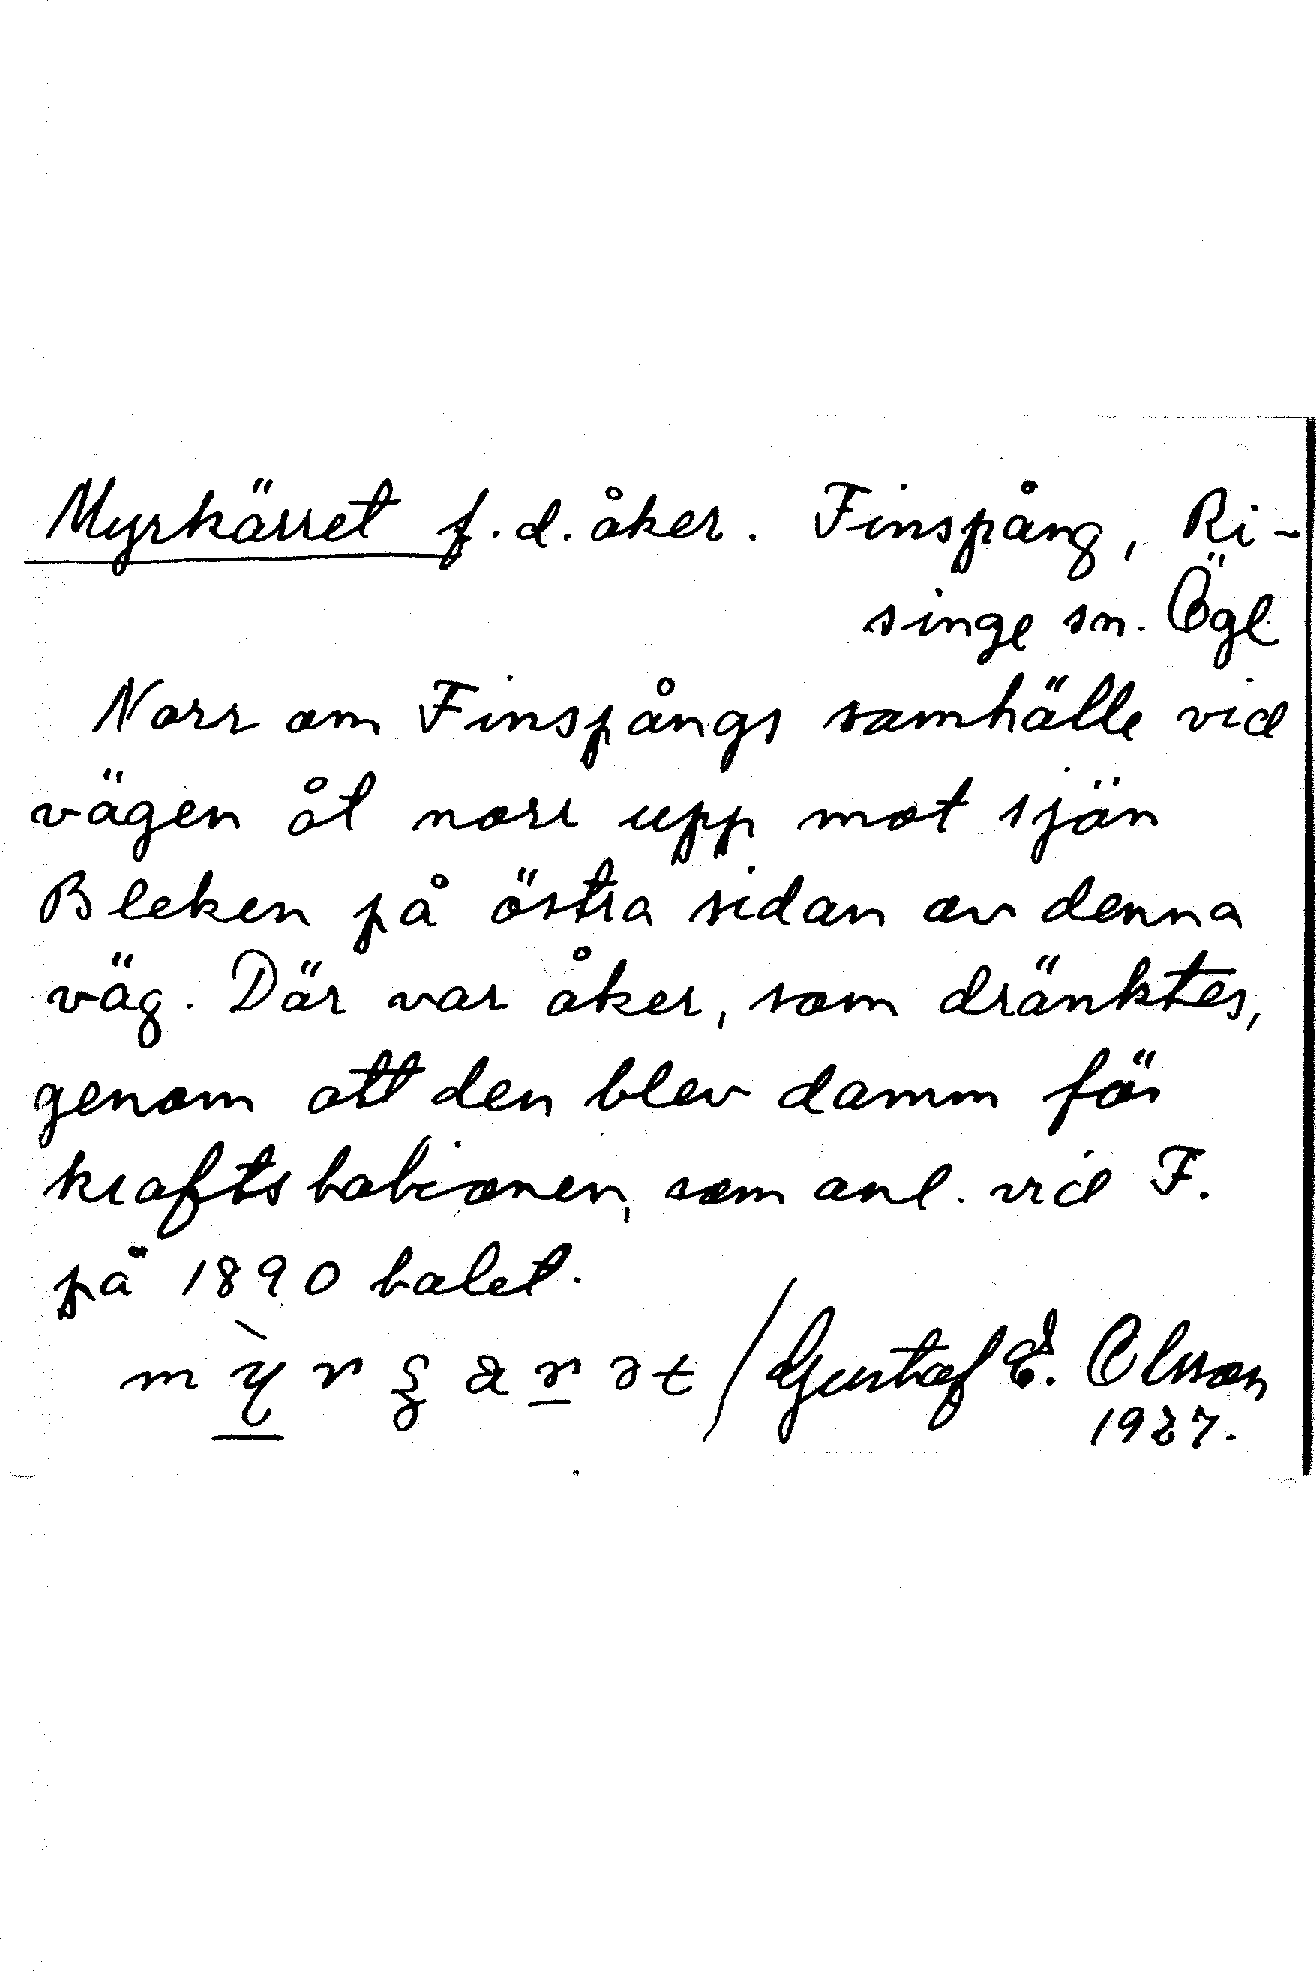 Myrkärret f.d. åker. Finspång, Ri-
singe sn. Ögl
Norr om Finspångs samhälle vid
vägen åt norr upp mot sjön
Bleken på östra sidan av denna
väg. Där var åker, som dränktes,
genom att den blev damm för
kraftstationen, som anl. vid F.
på 1890 talet.
/ Gustaf E. Olsson
1927.